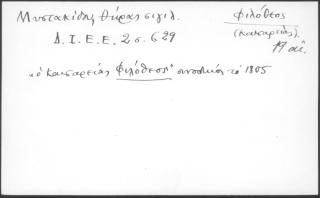 Μυστακίδης Θύρας σιγιλ.
Δ.Ι.Ε.Ε. 2 σ. 629
Φιλόθεος
(Καισαρείας).
19 αἰ.
"ὁ Καισαρείας Φιλόθεος" συνοδικός τὸ 1805